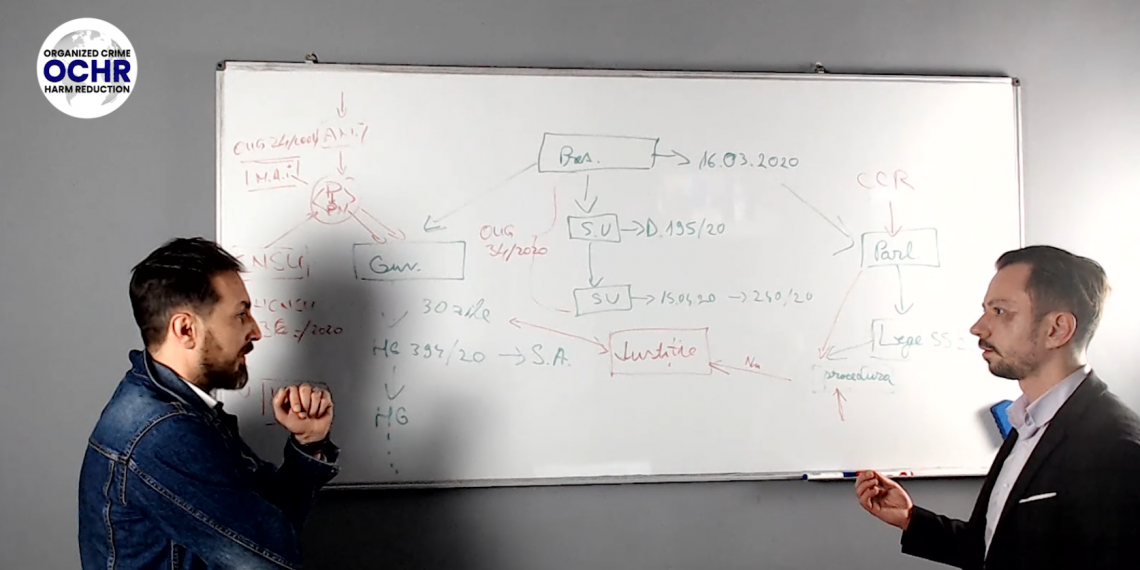 ORGANIZED CRIME
OCHR
HARM REDUCTION
OUG 24/2004
M.A.i
Pres.
16.03.2020
CCR
S.U
D. 195/20
OUG
34/2020
Parl
Guv.
SU
15.04.20
240/20
30 zile
/2020
HG 394/20
S.A.
Justiție
Nu
Lege 55
procedura
HG